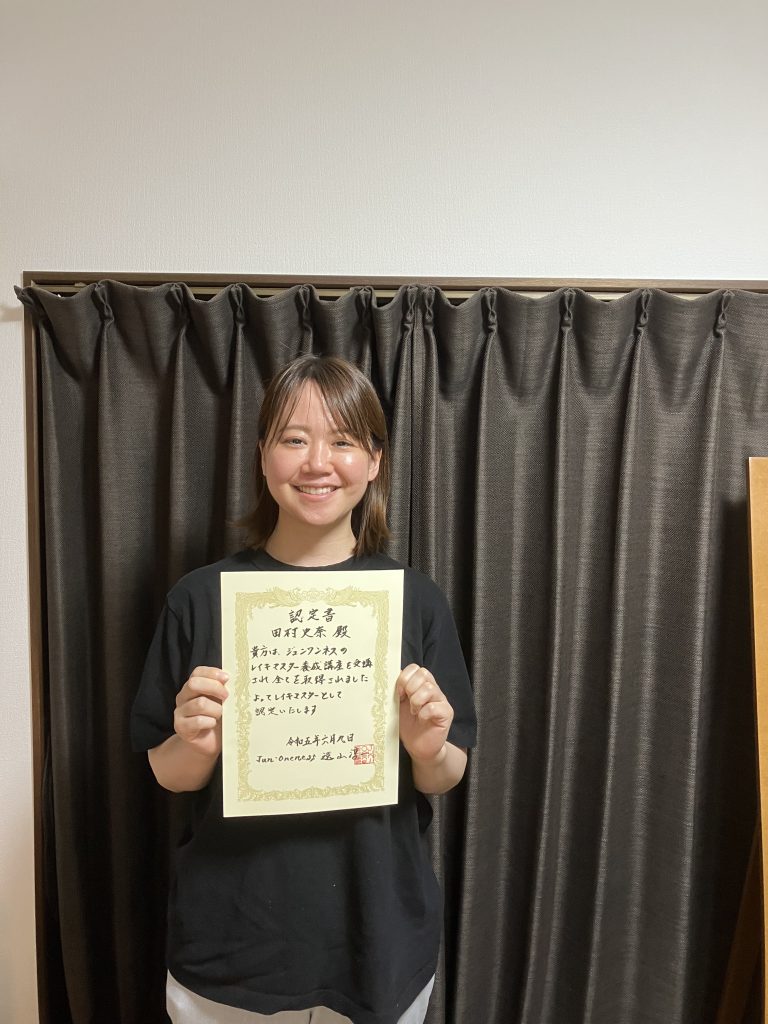 認定書
田村史奈 殿
貴方は、ジュンワンネスの
レイキマスター養成講座を受講
され、全てを取得されました
よってレイキマスターとして
認定いたします
令和五年六月九日
Jun・Oneness 遠山淳